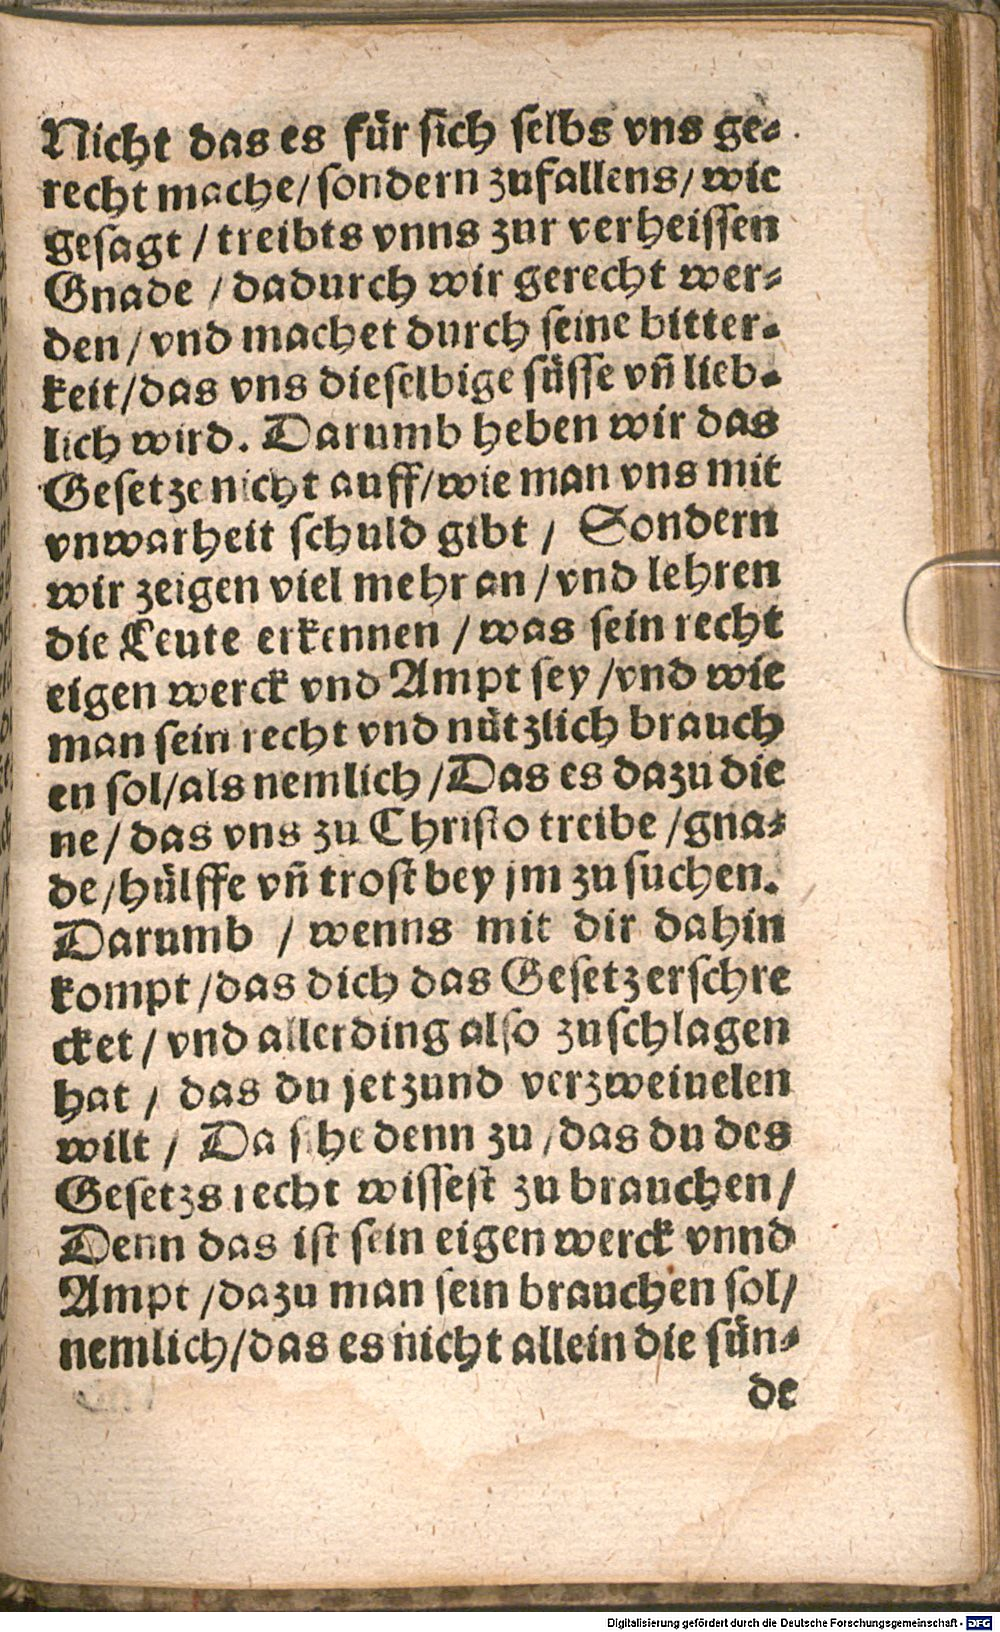 Nicht das es für sich selbs vns ge-
recht mache/ sondern zufallens/ wie
gesagt / treibts vnns zur verheissen
Gnade / dadurch wir gerecht wer-
den / vnd machet durch seine bitter-
keit/das vns dieselbige süsse vñ lieb-
lich wird. Darumb heben wir das
Gesetze nicht auff/wie man vns mit
vnwarheit schuld gibt / Sondern
wir zeigen viel mehr an / vnd lehren
die Leute erkennen / was sein recht
eigen werck vnd Ampt sey /vnd wie
man sein recht vnd nützlich brauch
en sol/als nemlich /Das es dazu die
ne / das vns zu Christo treibe /gna-
de/hülffe vñ trost bey jm zu suchen.
Darumb / wenns mit dir dahin
kompt /das dich das Gesetz erschre
cket / vnd allerding also zuschlagen
hat / das du jetzund verzweiuelen
wilt / Da sihe denn zu /das du des
Gesetzs recht wissest zu brauchen/
Denn das ist sein eigen werck vnnd
Ampt /dazu man sein brauchen sol/
nemlich/das es nicht allein die sün-
de
Digitalisierung gefördert durch die Deutsche Forschungsgemeinschaft - DFG